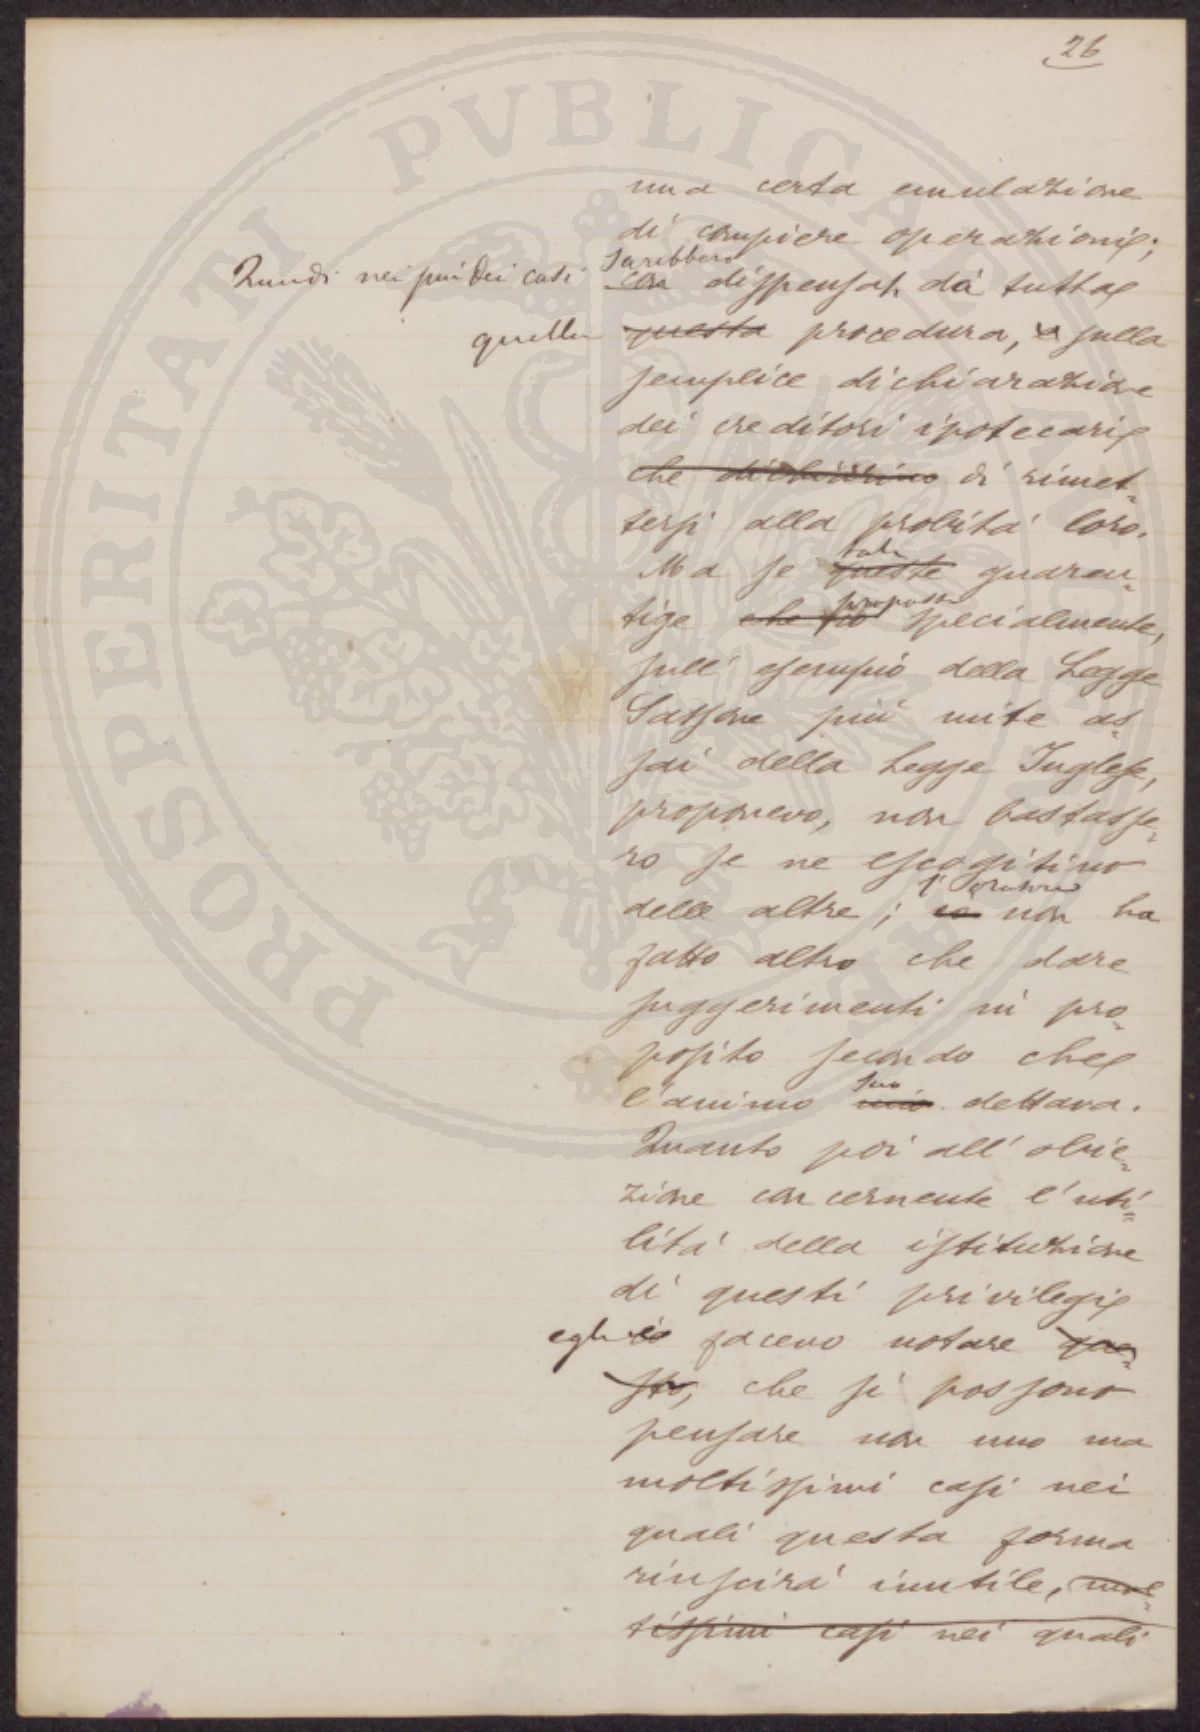 26
una certa emulazione
di compiere operazioni;
Quindi nei più dei casi sarebbero
~~con~~ dispensati da tutta
quella ~~questa~~ procedura, ~~e~~ sulla
semplice dichiarazione
dei creditori ipotecari
~~che dichiarino~~ di rimet-
tersi alla probità loro.
Ma se tali ~~queste~~ guaren-
tige ~~che io~~ proposte specialmente,
sull'esempio della Legge
Sassone più mite as-
sai della Legge Inglese,
proponevo, non bastasse-
ro se ne escogitino
delle altre; l'oratore ~~io~~ non ha
fatto altro che dare
suggerimenti in pro-
posito secondo che
l'animo suo ~~mio~~ dettava.
Quanto poi all'obie-
zione concernente l'uti-
lità della istituzione
di questi privilegi
egli ~~io~~ facevo notare ~~que-~~
~~sto~~, che si possono
pensare non uno ma
moltissimi casi nei
quali questa forma
riuscirà inutile, ~~mol-~~
~~tissimi casi nei quali~~
PROSPERITATI PVBLICAE